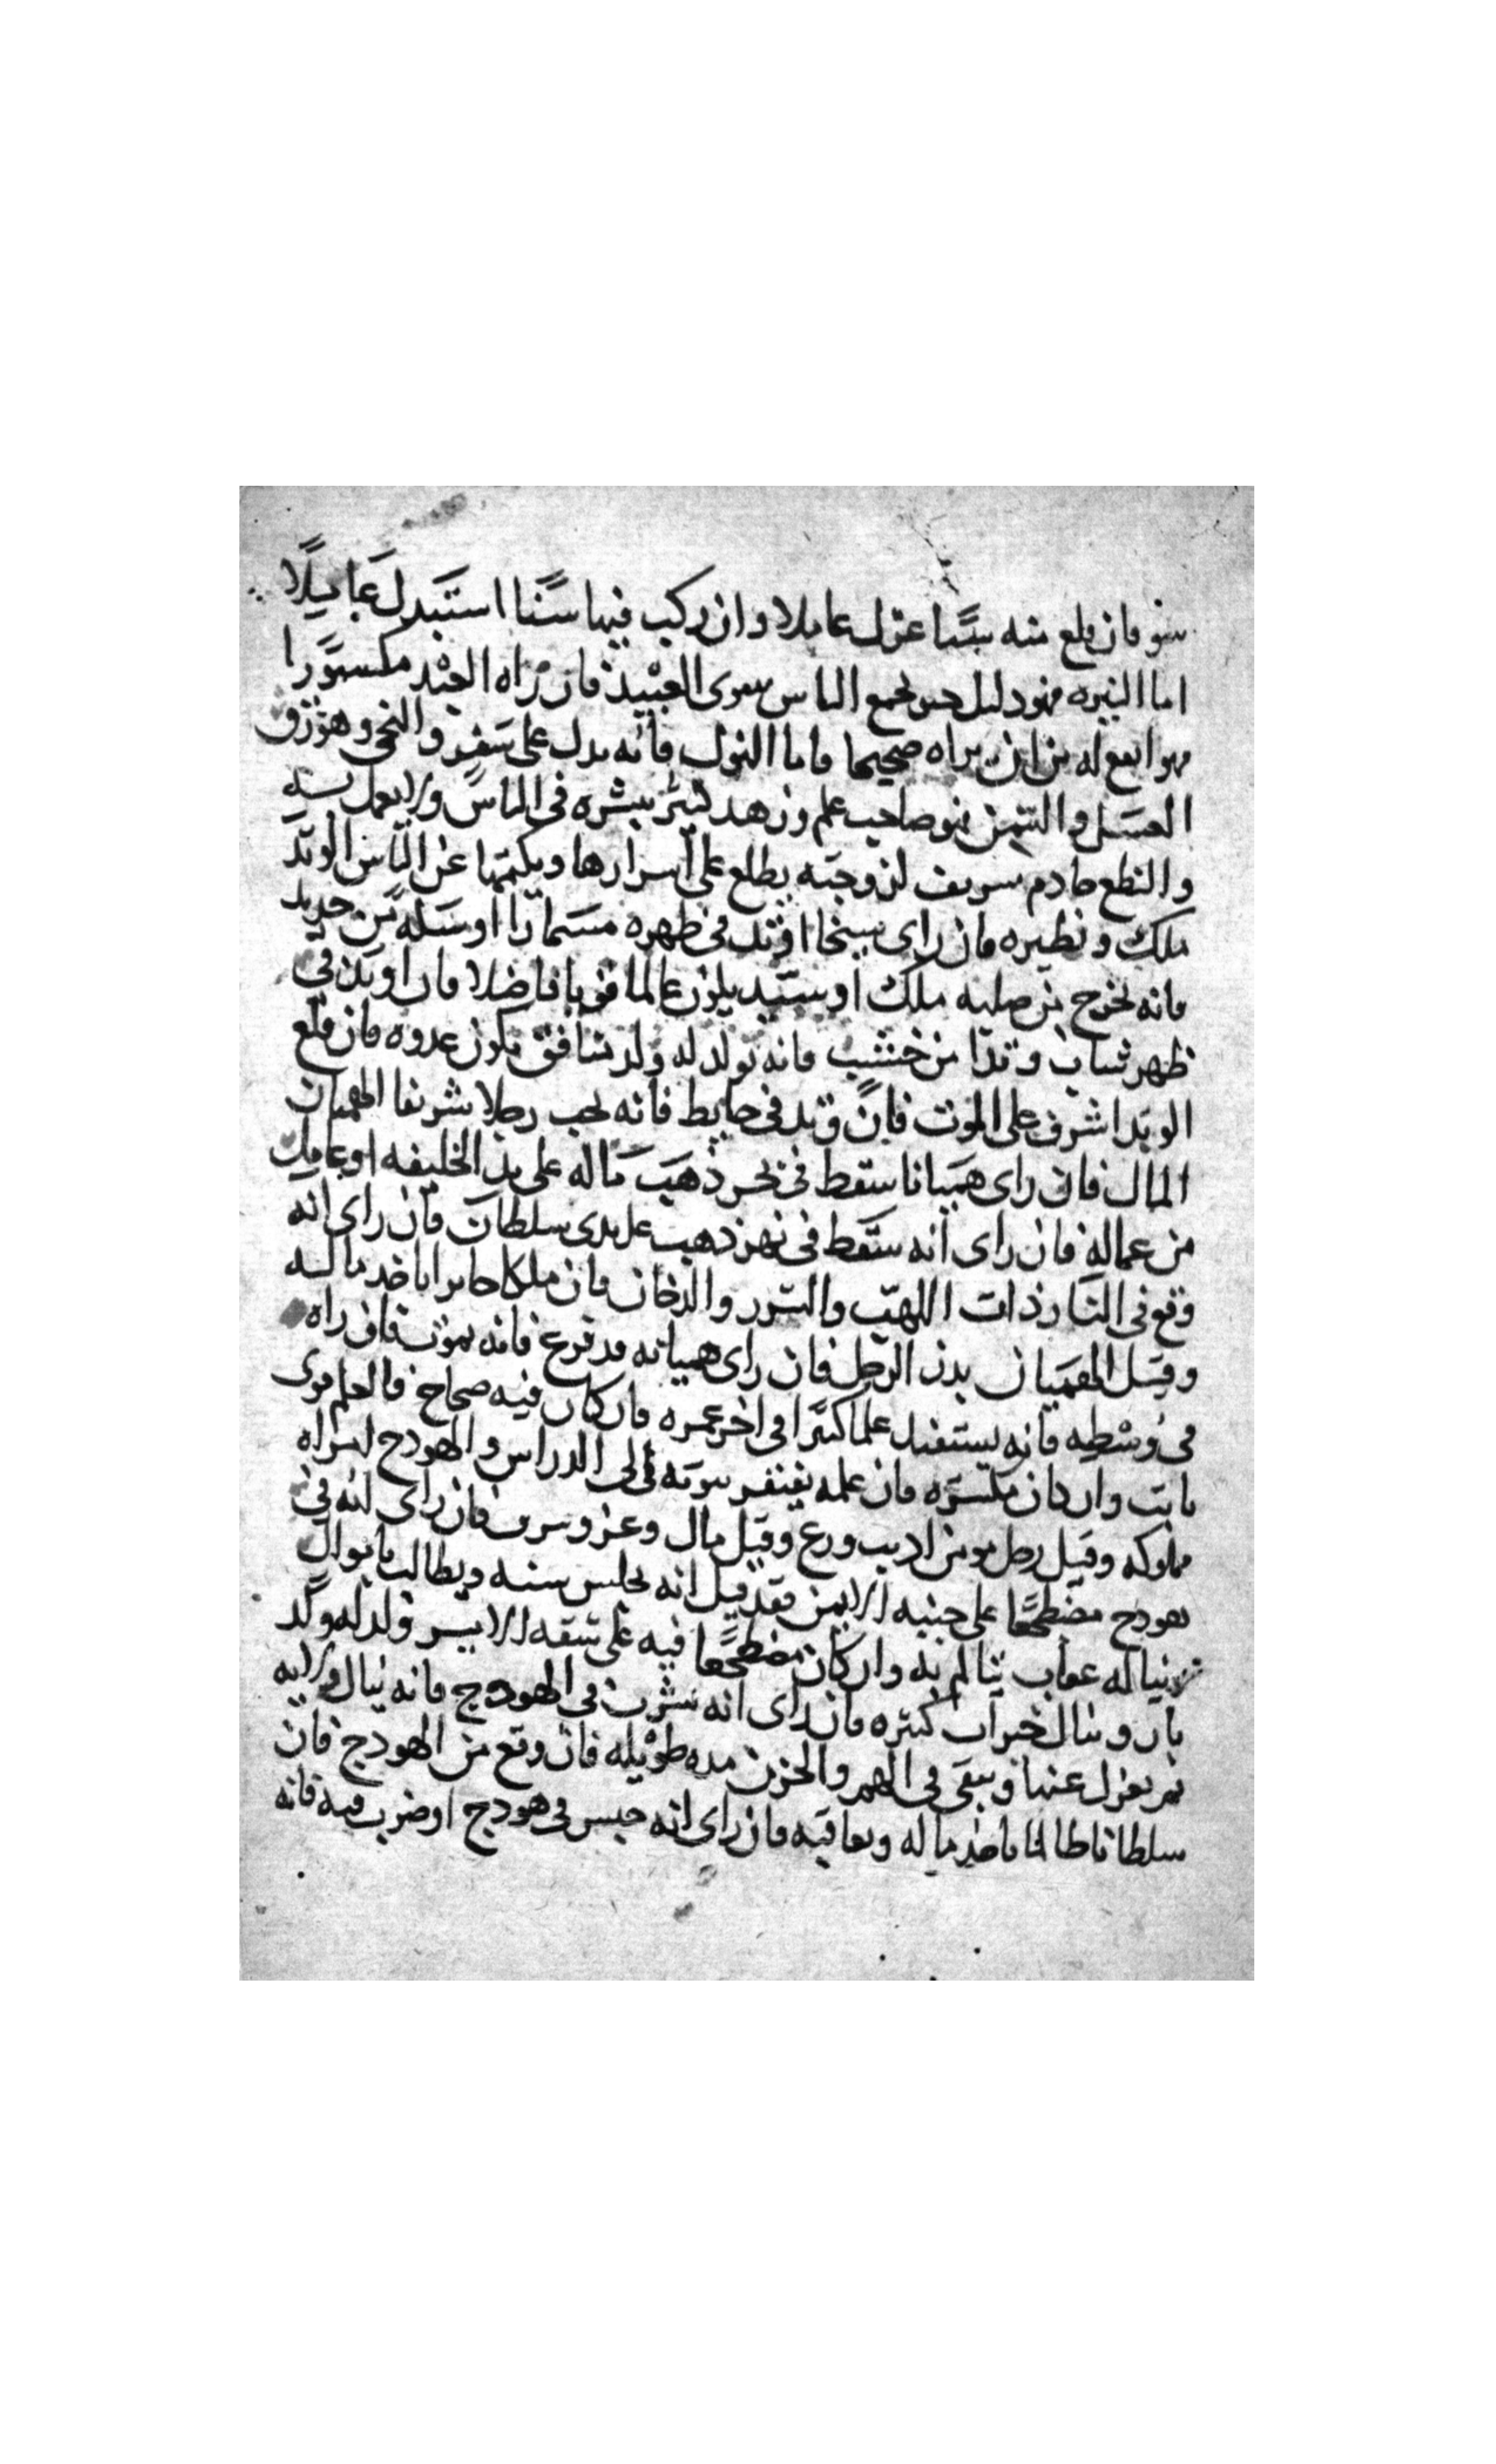 سو فان قلع منه سنا عزل عاملا وان ركب فيها سنا استبدل عاملا
اما النيره فهو دليل حبس لجمع الناس سوى العبيد فان راه العبد مكسورا
فهو انفع له من ان يراه صحيحا فاما النول فانه يدل على سفر والنحي وهو زق
العسل والسمن فهو صاحب علم وزهد كثير يبشره في الناس ولا يعمل به
والنطع خادم شريف لزوجته يطلع على اسرارها ويكتمها عن الناس الوتد
ملك ونظيره فان راى شيخا اوتد في ظهره مسمارا او سكه من حديد
فانه يخرج من صلبه ملك او سيد يكون عالما قويا فاضلا فان اوتد في
ظهر شاب وتدا من خشب فانه يولد له ولد منافق يكون عدوه فان قلع
الوتد اشرف على الموت فان وتد في حايط فانه يحب رجلا شريفا الهميان
المال فان راى هميانا سقط في بحر ذهب ماله على يد الخليفه او عامل
من عماله فان راى انه سقط في نهر ذهب على يدى سلطان فان راى انه
وقع في النار ذات اللهب والشرر والدخان فان ملكا جايرا ياخذ ماله
وقيل الهميان بدن الرجل فان راى هميانه قد فرغ فانه يموت فان راه
في وسطه فانه يستفيد علما كثيرا في اخر عمره فان كان فيه صحاح فالعلم قوى
ثابت وان كان مكسره فان علمه يفتقر فيه الى الدراس والهودج امراه
مملوكه وقيل رجل مومن اديب ورع وقيل مال وعز وشرف فان راى انه في
هودج مضطجعا على جنبه الايمن فقد قيل انه يحبس سنه ويطالب باموال
ويناله عذاب يتالم به وان كان مضطجعا فيه على شقه الايسر ولد له ولد
بار وينال خيرات كثيره فان راى انه يشرب في الهودج فانه ينال ولايه
ثم يعزل عنها ويبقى في الهم والحزن مده طويله فان وقع من الهودج فان
سلطانا ظالما ياخذ ماله ويعاقبه فان راى انه حبس في هودج او ضرب فيه فانه